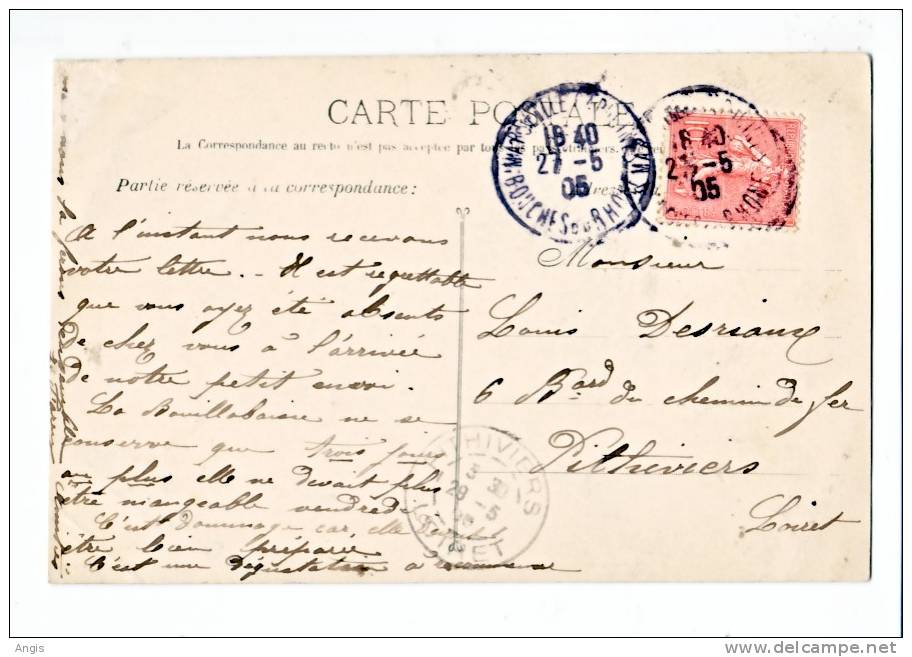 CARTE POSTALE
La Correspondance au recto n'est pas acceptée par tous
Partie réservée à la correspondance:
MARSEILLE
18 40
27 -5
05
BOUCHES DU RHONE
18 40
27 -5
05
A l'instant nous recevons
votre lettre. - Il est regrettable
que vous ayez été absents
de chez vous à l'arrivée
de notre petit envoi.
La Bouillabaisse ne se
conserve que trois jours
au plus elle ne devait plus
être mangeable vendredi
C'est dommage car elle
être bien préparée
C'est une dégustation à recommencer
Monsieur
Louis Desriaux
6 Bard du chemin de fer
Pithiviers
Loiret
PITHIVIERS
5 30
29 -5
05
LOIRET
Angis
delcampe.net